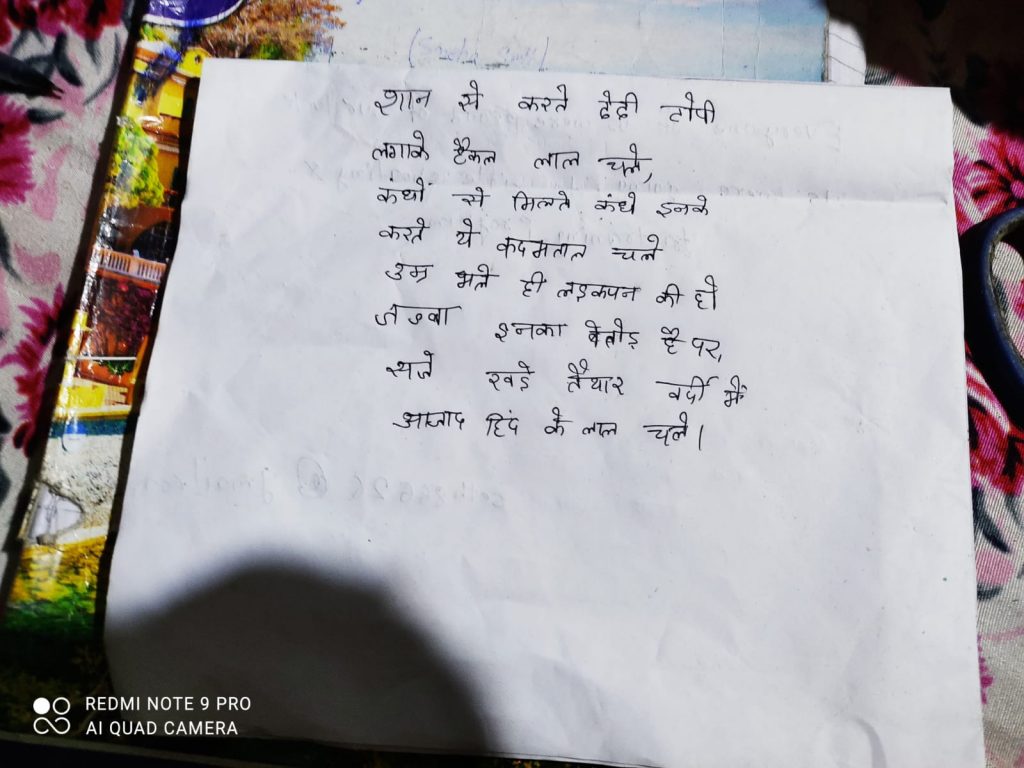 शान से करते टेढी टोपी
लगाके हैकल लाल चले,
कंधों से मिलते कंधे इनके
करते ये कदमताल चले
उम्र भले ही लड़कपन की हो
जज्बा इनका बेजोड़ है पर,
सजे खड़े तैयार वर्दी में
आजाद हिंद के लाल चले।
REDMI NOTE 9 PRO
AI QUAD CAMERA